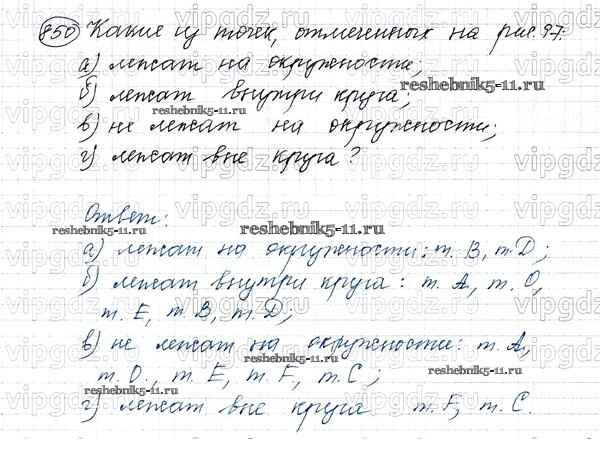 850 Какие из точек, отмеченных на рис. 97:
а) лежат на окружности;
reshebnik5-11.ru
б) лежат внутри круга;
reshebnik5-11.ru
в) не лежат на окружности;
г) лежат вне круга?
Ответ:
reshebnik5-11.ru
reshebnik5-11.ru
а) лежат на окружности: т. В, т. D;
б) лежат внутри круга: т. А, т. О,
т. Е, т. В, т. D;
в) не лежат на окружности: т. А,
reshebnik5-11.ru
т. О, т. Е, т. F, т. С;
reshebnik5-11.ru
reshebnik5-11.ru
г) лежат вне круга т. F, т. С.
vipgdz.ru